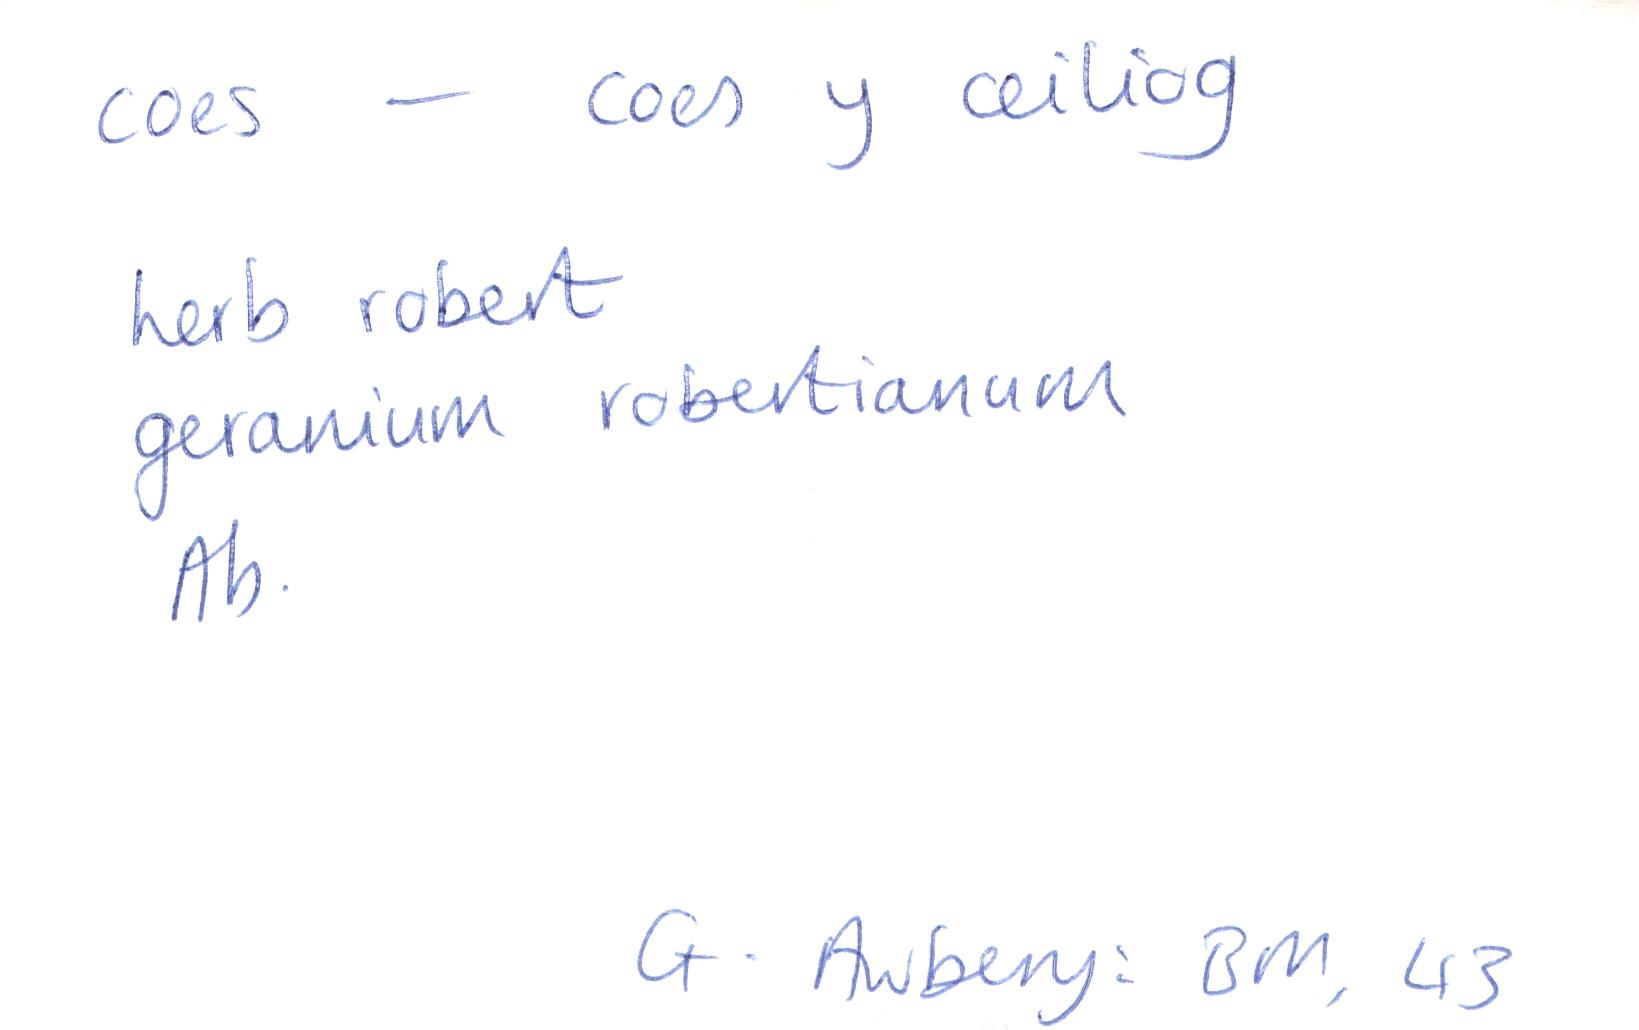 coes — coes y ceiliog
herb robert
geranium robertianum
Ab.
G. Awbery: BM, 43